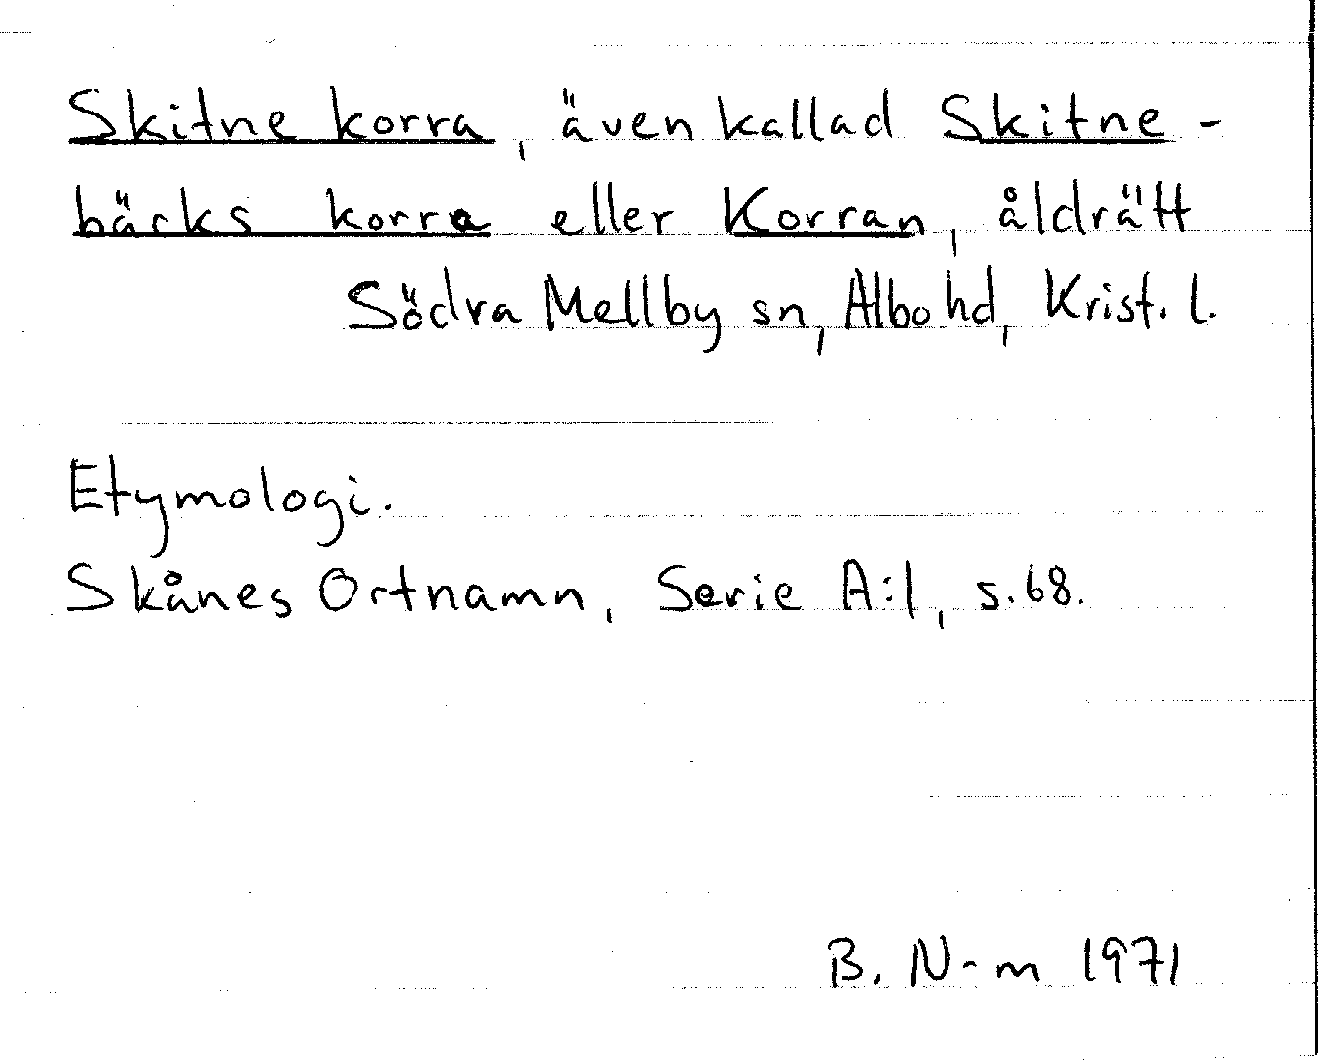 Skitne korra, även kallad Skitne-
bäcks korra eller Korran, åldrätt
Södra Mellby sn, Albo hd, Krist. l.
Etymologi.
Skånes Ortnamn, Serie A:1, s.68.
B. N-m 1971